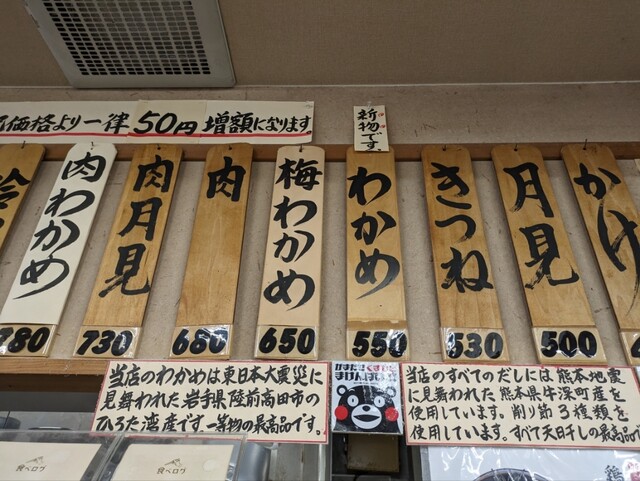 価格より一律50円増額になります
新物です。
肉わかめ
780
肉月見
730
肉
680
梅わかめ
650
わかめ
550
きつね
530
月見
500
かけ
当店のわかめは東日本大震災に
見舞われた岩手県陸前高田市の
ひろた湾産です。一等物の最高品です。
まけんばい
当店のすべてのだしには熊本地震
に見舞われた熊本県牛深町産を
使用しています。削り節3種類を
使用しています。すべて天日干しの最高品で
食べログ
食べログ